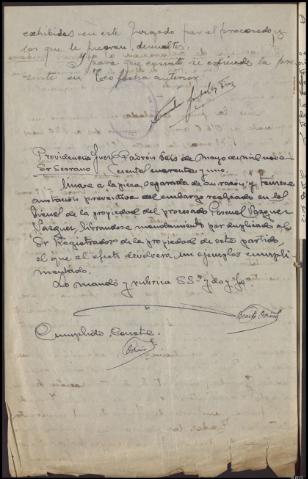 exhibidos en este Juzgado por el procesado y
los que le fueron devueltos.
Y para que conste se extiende la pre
sente en fecha anterior
Providencia Juez Padrón Seis de Mayo de mil nove
Sr Serrano cientos cuarenta y uno.
Únase a la pieza separada de su razón y tómese
anotación preventiva del embargo realizado en el
de la propiedad del procesado Manuel Vázquez
Vázquez, librándose mandamiento por duplicado al
Sr Registrador de la propiedad de este partido,
el que al efecto devolverá un ejemplar cumpli
mentado.
Lo mandó y rubrica SSª y doy fe
Cumplido Conste.